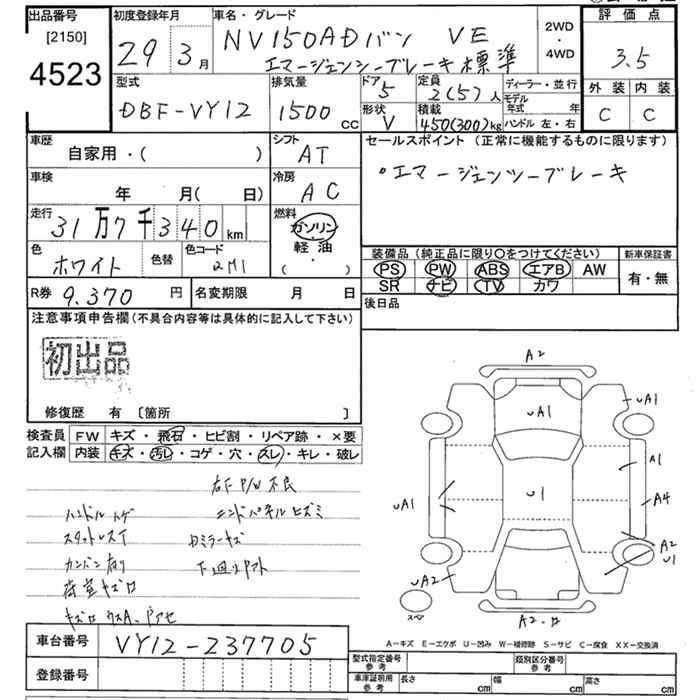 出品番号
[2150]
4523
初度登録年月
29年3月
車名・グレード
NV150ADバン VE
エマージェンシーブレーキ標準
2WD
・
4WD
評価点
3.5
外装 内装
C C
型式
DBF-VY12
排気量
1500 cc
ドア
5
形状
V
定員
2(5)人
積載
450(300)kg
ディーラー・並行
モデル年式 年
ハンドル 左・右
車歴
自家用・( )
シフト
AT
車検
年 月( 日)
冷房
AC
走行
31万7千340km
燃料
ガソリン
軽油
( ・ )
色
ホワイト
色替
色コード
2M1
R券 9.370 円
名変期限 月 日
セールスポイント (正常に機能するものに限ります)
・エマージェンシーブレーキ
装備品 (純正品に限り○をつけてください)
新車保証書
PS PW ABS エアB AW
SR ナビ TV カワ
有・無
後日品
注意事項申告欄(不具合内容等は具体的に記入して下さい)
初出品
修復歴 有 [箇所 ]
検査員
記入欄
FW キズ・飛石・ヒビ割・リペア跡・×要
内装 キズ・汚レ・コゲ・穴・スレ・キレ・破レ
右F P/W 不良
ハンドル ハゲ
エンドパネル ヒズミ
スタットレスT
Dミラーキズ
カンバン有り
下廻りサビ
荷室キズ
A2
uA1
uA1
A1
uA1
u1
A4
A2
u1
uA2
スペア
A2
A-キズ E-エクボ U-凹み W-補修跡 S-サビ C-腐食 XX-交換済
車台番号 VY12-237705
登録番号
型式指定番号
参考
類別区分番号
参考
車庫証明用
参考
長さ cm
幅 cm
高さ cm